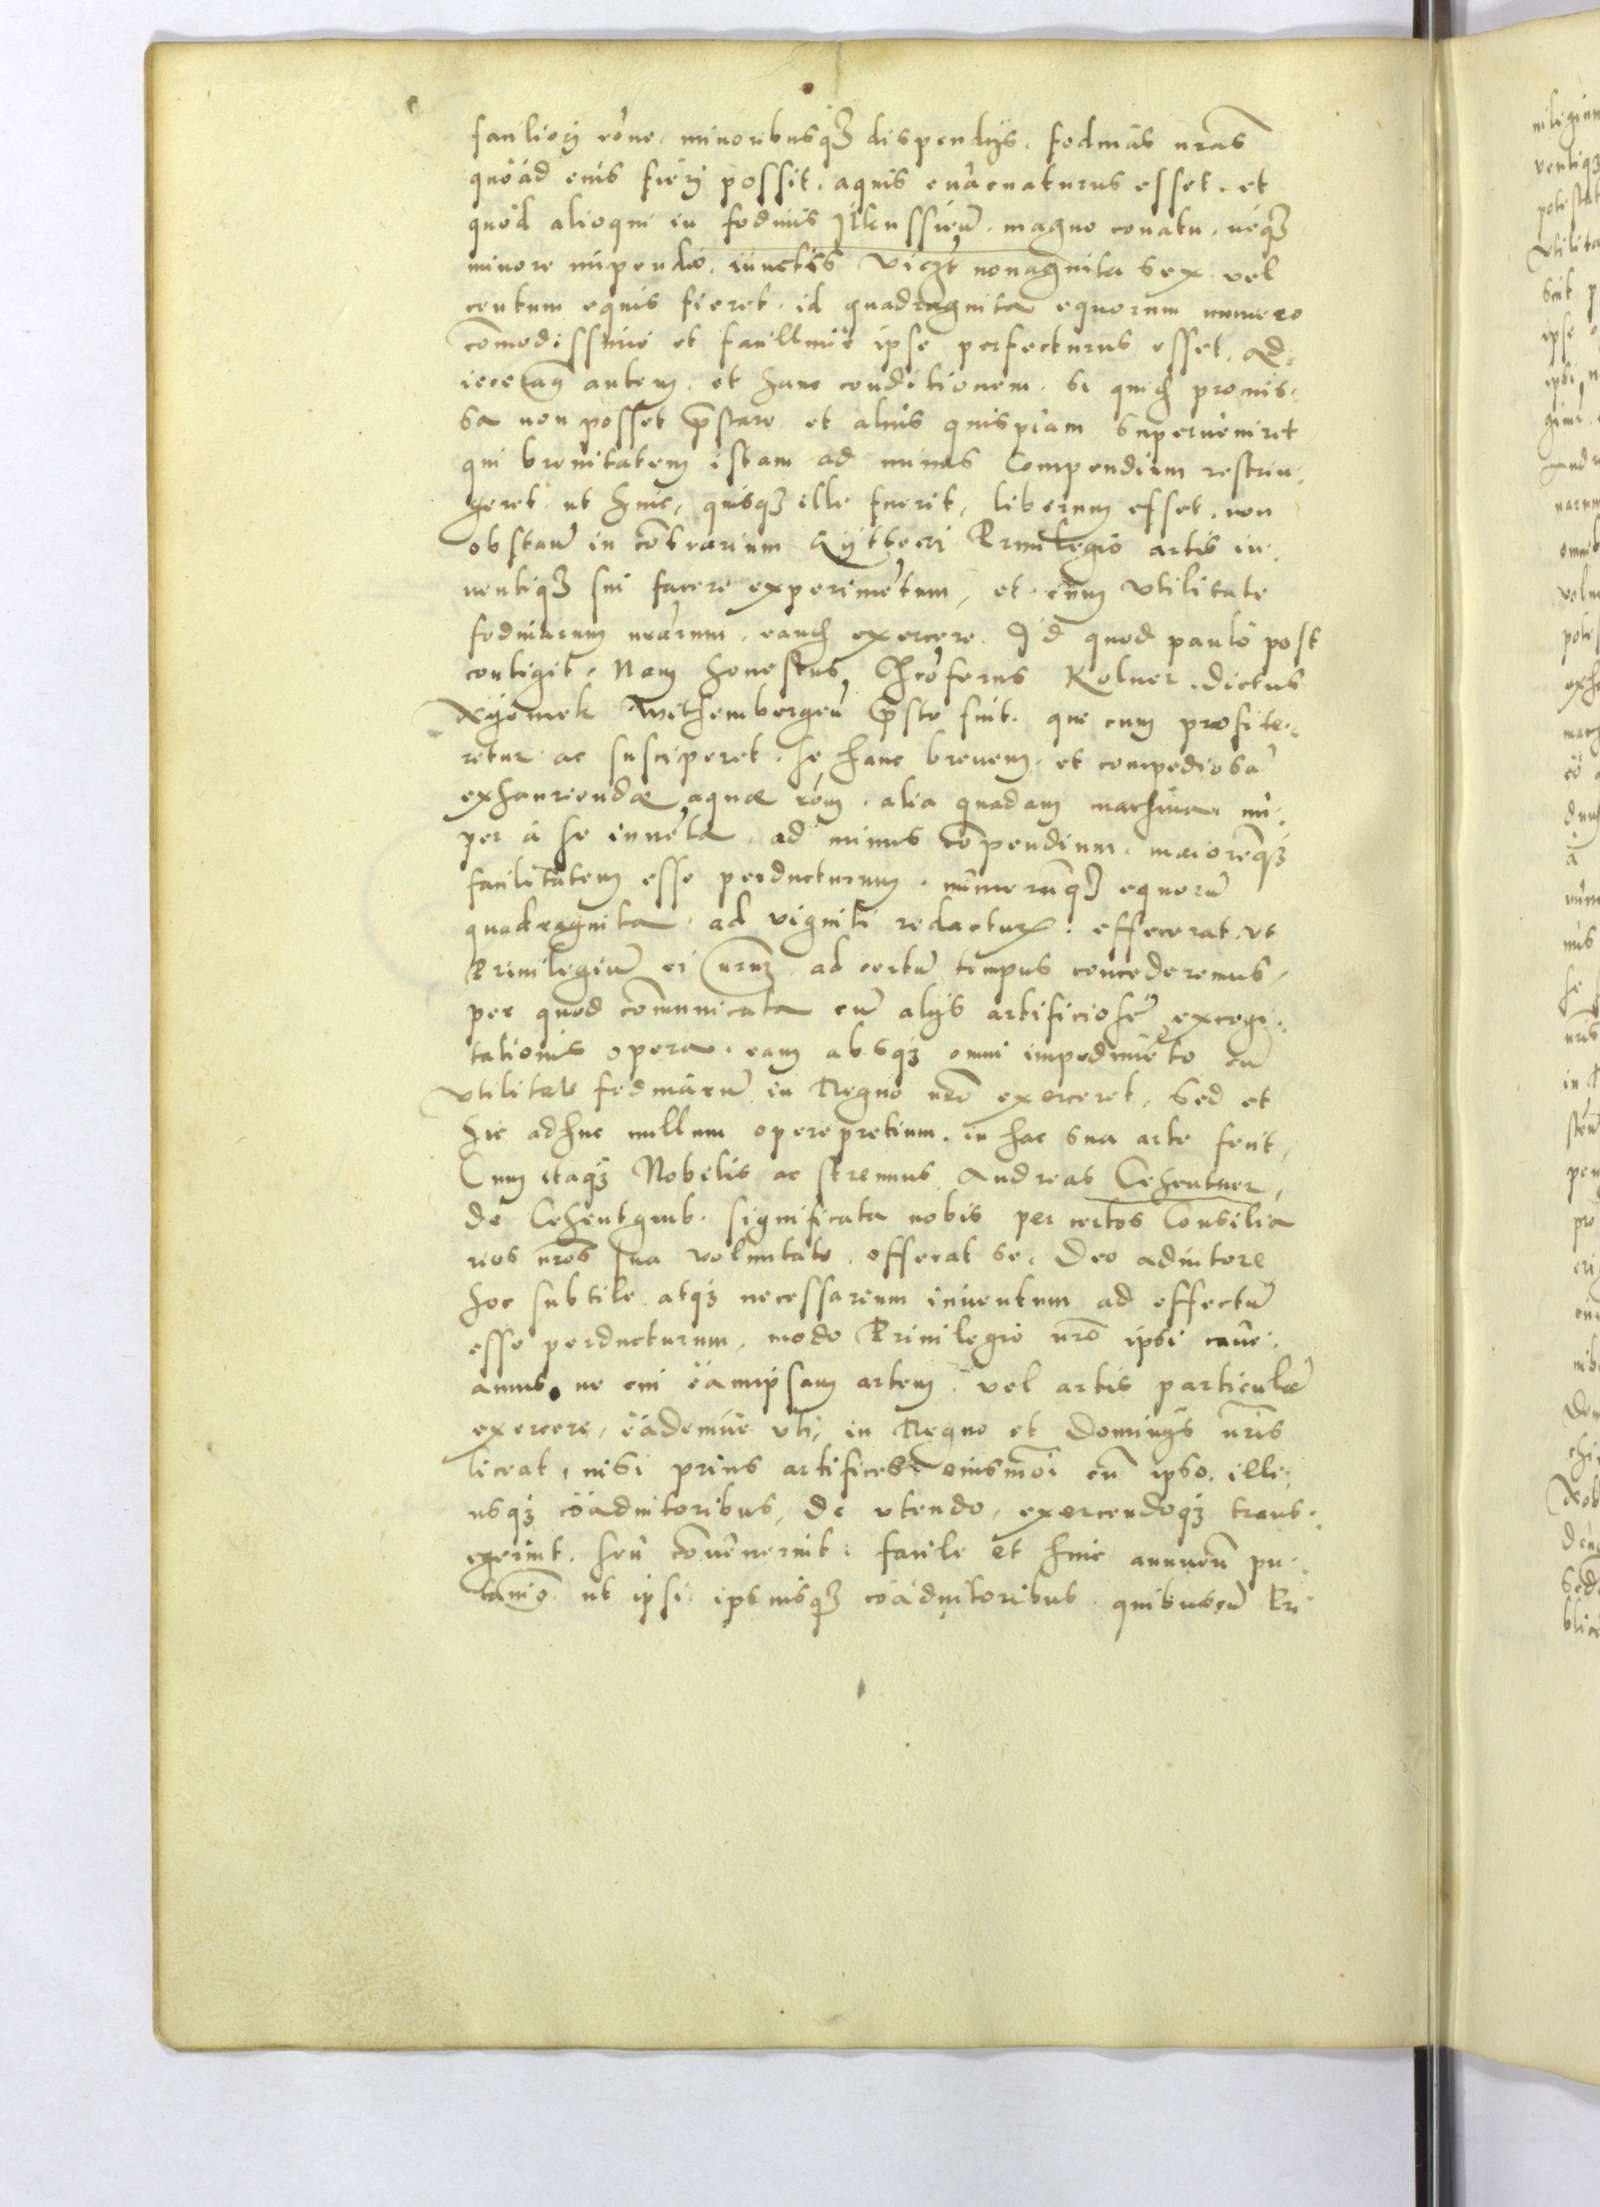 faciliori rõne, minoribusqȝ dispendijs, fodinas nr̃as
quoad eius fieri possit, aquis euacuaturus esset, et
quod alioqui in fodinis magno conatu, neqȝ
minore impendio, iunctis vicȝt nonaginta sex vel
centum equis fieret, id quadraginta equorum numero
cõmodissime et facillime ipse perfecturus esset, Ad,
autem, et hanc conditionem, si quid promis,
sa non posset p̃stare et alius quispiam superueniret
qui breuitatem istam ad minus Compendium restrin,
geret, ut huic, quisqȝ ille fuerit, liberum esset, non
obstan̄ in cõtrarium Priuilegio artis in,
uentiqȝ sui facere experimẽtum, et cum vtilitate
fodinarum nr̃arum, eand exercere. Id quod paulo post
contigit, Nam honestus Kolner, dictus
Withembergeñ p̃sto fuit, qui cum profite,
retur ac susciperet, se hanc breuem, et compẽdiosã
exhauriendæ aquæ rõem, alia quadam machina nu,
per à se inuẽta, ad minus cõpendium, maioremqȝ
facilitatem esse perducturum, numerumqȝ equorũ
quadraginta, ad viginti redacturȝ, effecerat, vt
Priuilegiũ ei nr̃um ad certũ tempus concederemus,
per quod cõmunicata cũ alijs artificiose excogi,
tationis opera, eam absqȝ omni impedimẽto cũ
vtilitate fodinarũ in Regno nr̃o exerceret, Sed et
hic adhuc nullum operepretium, in hac sua arte fecit,
Cum itaqȝ Nobilis ac strenuus Andreas Cehentner,
de Cehentgrub, significata nobis per certos Consilia
rios nr̃os sua voluntate, offerat se, Deo adiutore
hoc subtile atqȝ necessarium inuentum ad effectũ
esse perducturum, modo Priuilegio nr̃o ipsi caue,
amus, ne cui eamipsam artem, vel artis particulã
exercere, eademue vti, in Regno et Dominijs nr̃is
liceat, nisi prius artifices eiusmõi cũ ipso, illi,
usqȝ coadiutoribus, de vtendo, exercendoqȝ trans,
egerint, seu conuenerint, facile et huic annuen̄ pu,
tamus ut ipsi ipsiusqȝ coadiutoribus quibuscũ Pri